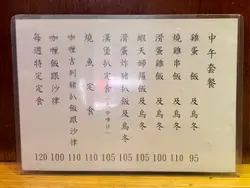 中午套餐
雞蛋飯 及烏冬 95
燒雞串飯 及烏冬 110
滑蛋雞飯及烏冬 100
蝦天婦羅飯及烏冬 105
滑蛋炸豬扒飯及烏冬 105
漢堡扒定食 105
燒魚定食 110
咖喱吉列豬扒飯跟沙律 110
咖喱飯跟沙律 100
每週特定定食 120